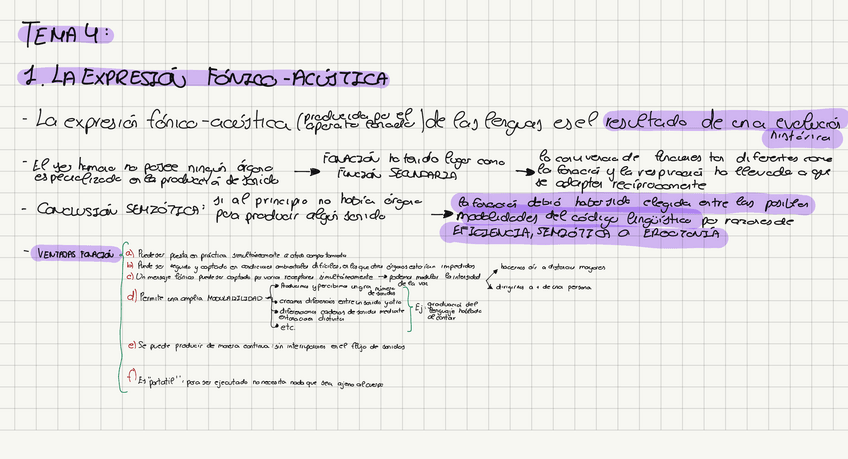 TEMA 4:
1. LA EXPRESIÓN FÓNICO-ACÚSTICA
- La expresión fónico-acústica (producida por el aparato fonador) de las lenguas es el resultado de una evolución histórica
- El ser humano no posee ningún órgano especializado en la producción de sonido → FONACIÓN ha tenido lugar como FUNCIÓN SECUNDARIA → la convivencia de funciones tan diferentes como la fonación y la respiración ha llevado a que se adapten recíprocamente
- CONCLUSIÓN SEMIÓTICA: si al principio no había órgano para producir algún sonido → la fonación debió haber sido elegida entre las posibles modalidades del código lingüístico por razones de EFICIENCIA, SEMIÓTICA O ERGONOMÍA
- VENTAJAS FONACIÓN
a) Puede ser puesta en práctica simultáneamente a otros comportamientos
b) Puede ser seguido y captado en condiciones ambientales difíciles, en las que otros órganos estarían impedidos
c) Un mensaje fónico puede ser captado por varios receptores simultáneamente → podemos modular la intensidad de la voz
hacernos oír a distancias mayores
dirigirnos a + de una persona
d) Permite una amplia MODULABILIDAD
→ Producimos y percibimos un gran número de sonidos
→ creamos diferencias entre un sonido y otro
→ diferenciamos cadenas de sonido mediante entonación distinta
→ etc.
Ej: gradual del lenguaje hablado al cantar
e) Se puede producir de manera continua: sin interrupciones en el flujo de sonidos
f) Es "portátil": para ser ejecutado no necesita nada que sea ajeno al cuerpo